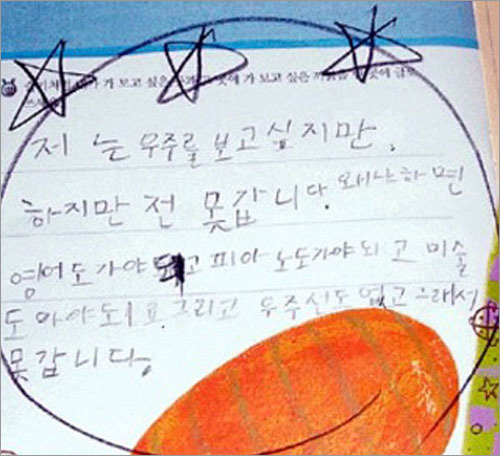 가 보고 싶은 곳에 가 보고 싶은 곳에
저 는 우주를 보고싶지만,
하지만 전 못갑니다. 왜냐하면
영어도가야되고 피아노도가야되고 미술
도 와야되고 그리고 우주선도 없고 그래서
못갑니다.